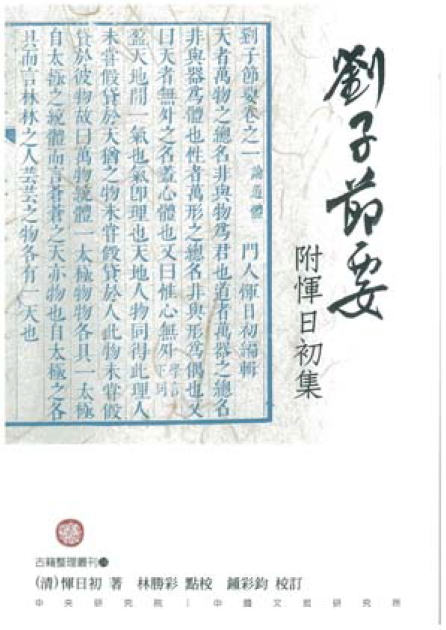 劉子節要
附惲日初集
劉子節要卷之一 論道體 門人惲日初編輯
天者萬物之總名非與物爲君也道者萬器之總名
非與器爲體也性者萬形之總名非與形爲偶也又
曰天者無外之名蓋心體也又曰惟心無外 學言下同
盈天地間一氣也氣卽理也天地人物同得此理人
未嘗假貸於天猶之物未嘗假貸於人此物未嘗假
貸於彼物故曰萬物統體一太極物物各具一太極
自太極之統體而言蒼蒼之天亦物也自太極之各
具而言林林之人芸芸之物各有一天也
古籍整理叢刊
(清)惲日初 著 林勝彩 點校 鍾彩鈞 校訂
中央研究院｜中國文哲研究所